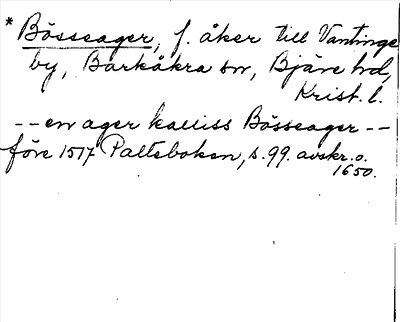 * Bösseager, f. åker till Vantinge
by, Barkåkra sn, Bjäre hd,
Krist. l.
-- en ager kalliss Bösseager --
före 1517 Paltsboken, s. 99. avskr. o.
1650.